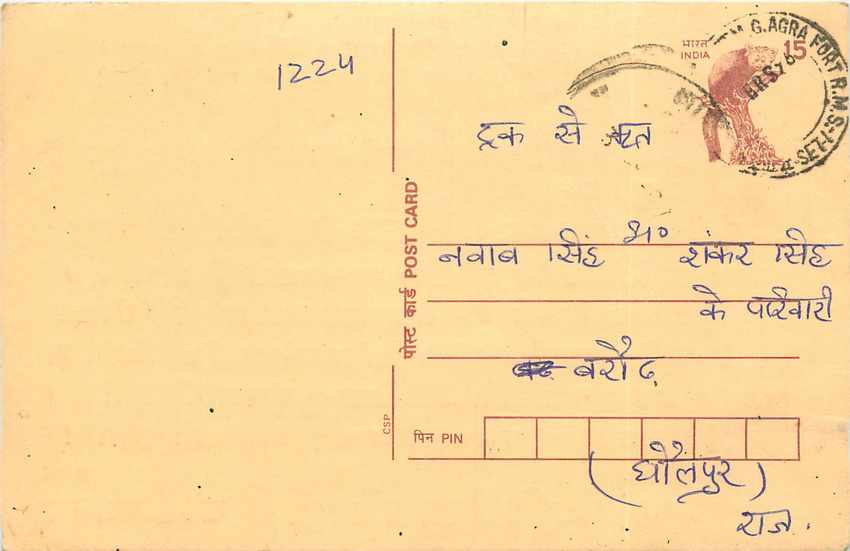 1224
भारत
INDIA
15
G.AGRA FORT R.M.S.
SET-1
ट्रक से
नवाब सिंह शंकर सिंह
के परिवारी
बरौद
पोस्ट कार्ड POST CARD
CSP
पिन PIN
(धौलपुर)
राज.